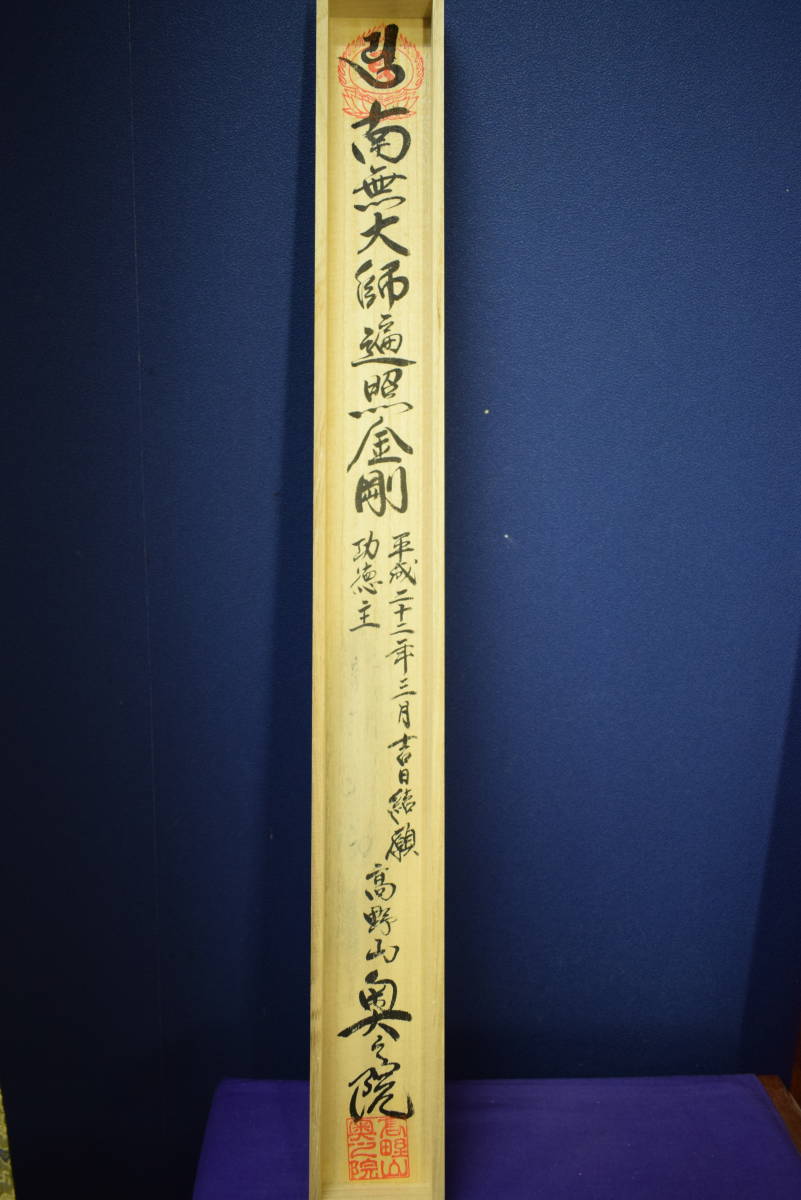 南無大師遍照金剛
平成二十二年三月吉日結願
功徳主
高野山奥之院
高野山
奥之院